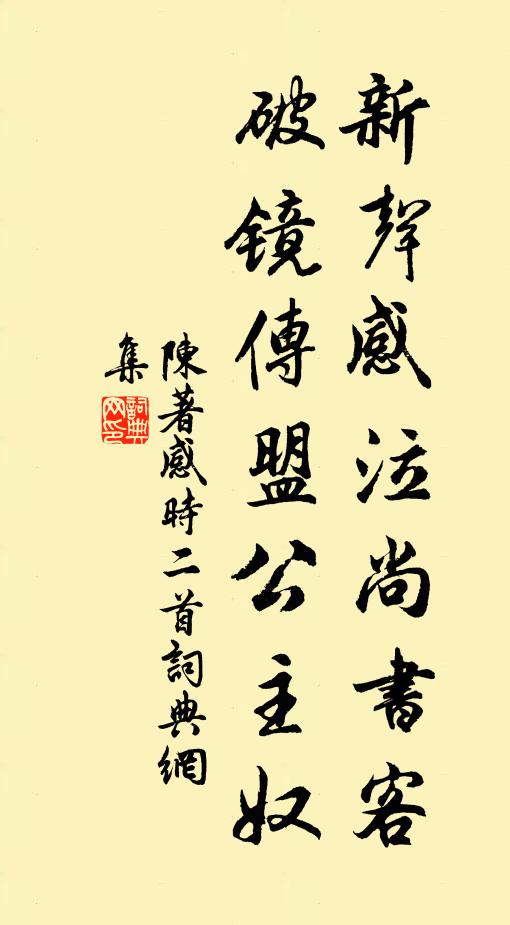 新聲感泣尚書客
破鏡傳盟公主奴
陳著感時二首詞典網
集
詞典網印